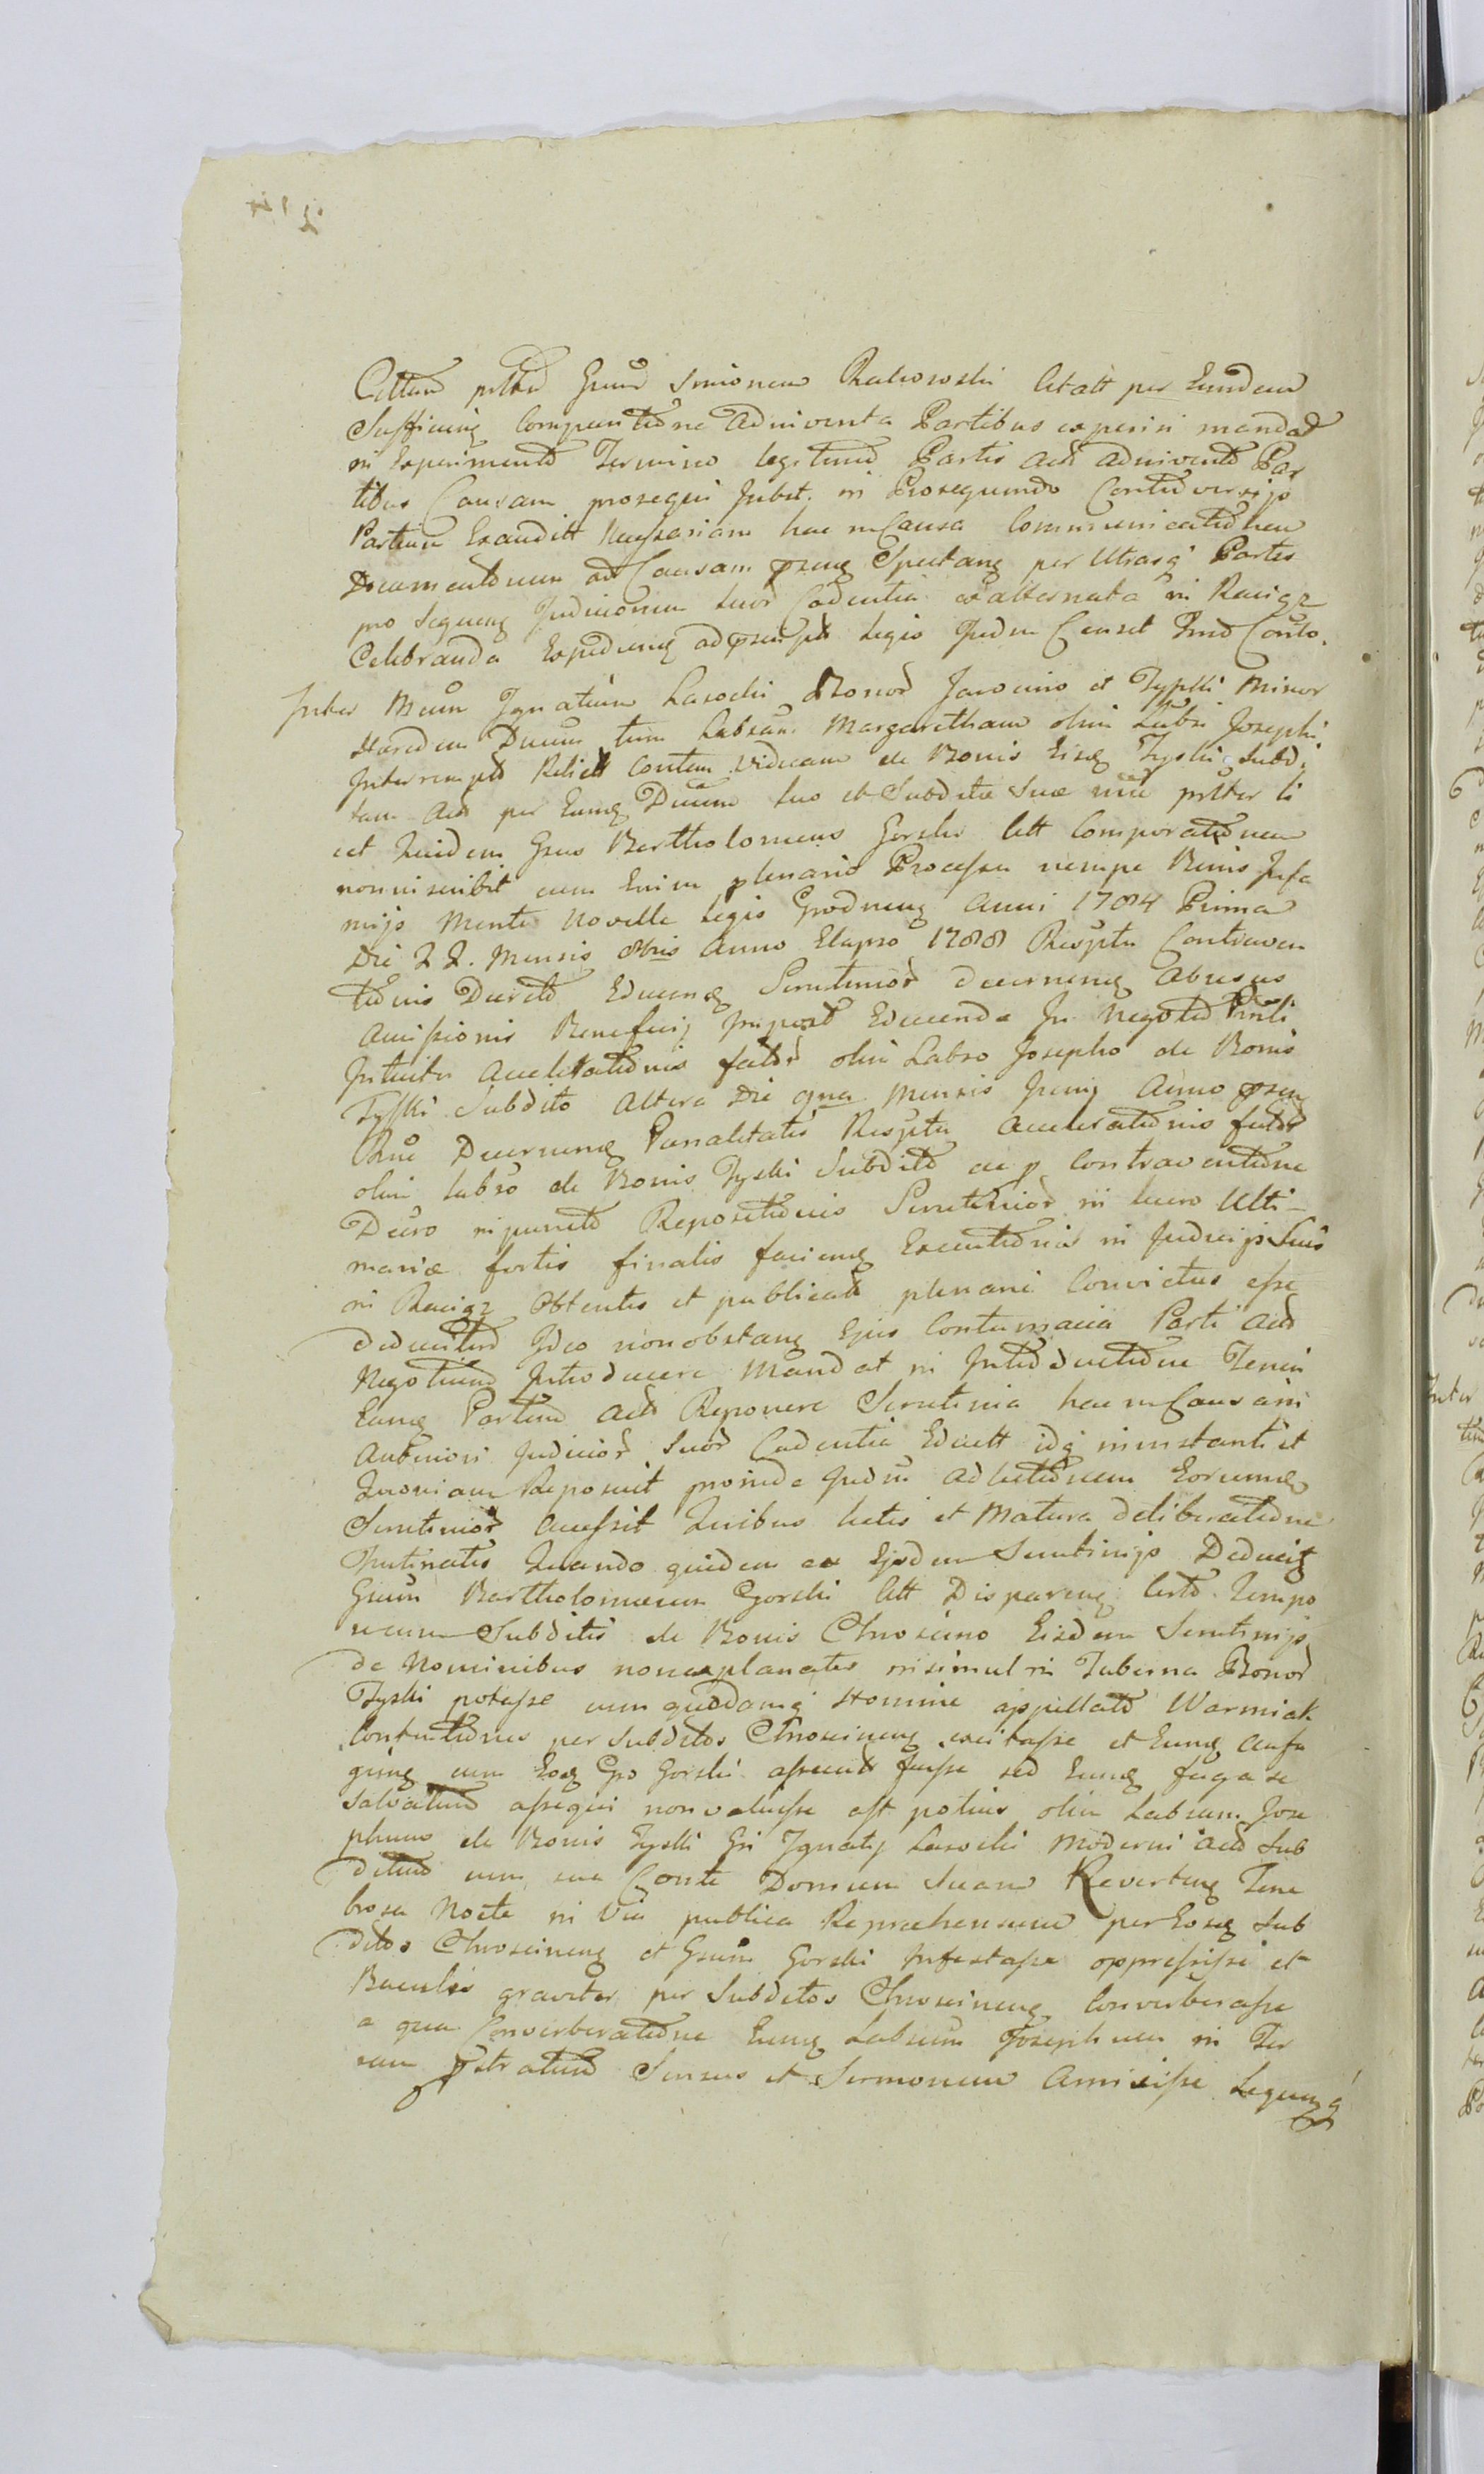 Cittum Gsum Simonem Rakowski Citatt per Eundem
Sufficieng Comparitione adinventa Partibus experiri mandat
in Experimento Termino legitimo Partis Act adinvento Par
tibus Causam prosequi Jubet. in Prosequendo Controversijs
Partium Exauditt Necessariam hac in Causa Communicationem
Documentorum ad Causam pseng Spectang per Utrasq Partes
pro Sequeng Judiciorum Suor Cadentia exalternata in Raciąz
Celebranda Expedieng ad legis Judm Censet
Inter Mcum Ignatium Lasocki Bonor Jarocino et Tyski Minor
Haeredem Dnum tum Labsam Margaretham olim Labsi Josephi
Interempt Relict Contem Viduam de Bonis Eisq Tyski Subd
tam Act per Eumq Dnum Suo et Subditae Suae nne li
cet Quidem Gsus Bartholomeus Gorski Citt Comparitionem
non inscribit cum Enim plenario Processu nempe Binis Infa
mijs Mente Novellae Legis Grodneng Anni 1784 Prima
Die 22. Mensis 8bris Anno Elapso 1788 Respctu Contraven
tionis Decreto Educeng Scrutinior decerneng abusus
Amissionis Beneficij Impost Educenda In Negotio Prnti
Intuitu Accelerationis fator olim Labso Josepho de Bonis
Tysski Subdito Altera Die 9na Mensis Junij Anno pseng
Decerneng Paenalitatis Respctu Accelerationis fator
olim Labso de Bonis Tyski Subdito ac p Contraventione
Decro in puncto Repositionis Scrutinior in lucro Ulti-
mariae sortis finalis facieng Executionis in Judicijs Suis
in Raciąz Obtentis et publicat plenarie Convictus esse
deducitur Ideo nonobstang Ejus Contumacia Parti Act
Negotium Introducere Mandat in Introductione Tenen
Eamq Partem Act Reponere Scrutinia hac in Causa in
Anteriori Judicior Suor Cadentia Eductt idq in instanti et
Quoniam Reposuit proinde Judm ad lectionem Eorumq
Scrutinior Accessit Quibus lectis et Matura deliberatione
Trutinatis Quando quidem ex Ejsdem Scrutinijs Deducitt
Gsum Bartholomaeum Gorski Citt Dispareng Certo Tempo
re cum Subditis de Bonis Chroscino Eisdem Scrutinijs
de Nominibus non explanatis insimul in Taberna Bonor
Tyski potasse cum quodamq Homine appellato Warmiak
Contentiones per Subditos Chroscineng excitasse et Eumq Aufu
gieng cum Eosq Gso Gorski assecut fuisse sed Eumq fuga se
salvatum assequi non valuisse ast potius olim Labsum Jose
phum de Bonis Tyski Gsi Ignatij Lasocki Moderni Act Sub
ditum cum sua Conte Domum Suam Reverteng Tene
brosa Nocte in Via publica Reprehensum per Eosq Sub
ditos Chroscineng et Gsum Gorski Infestasse oppressisse et
Baculis graviter per Subditos Chroscineng Converberasse
a qua Converberatione Eumq Labsum Josephum in Ter
ram pstratum Sensus et Sermonem Amisisse Sequengq